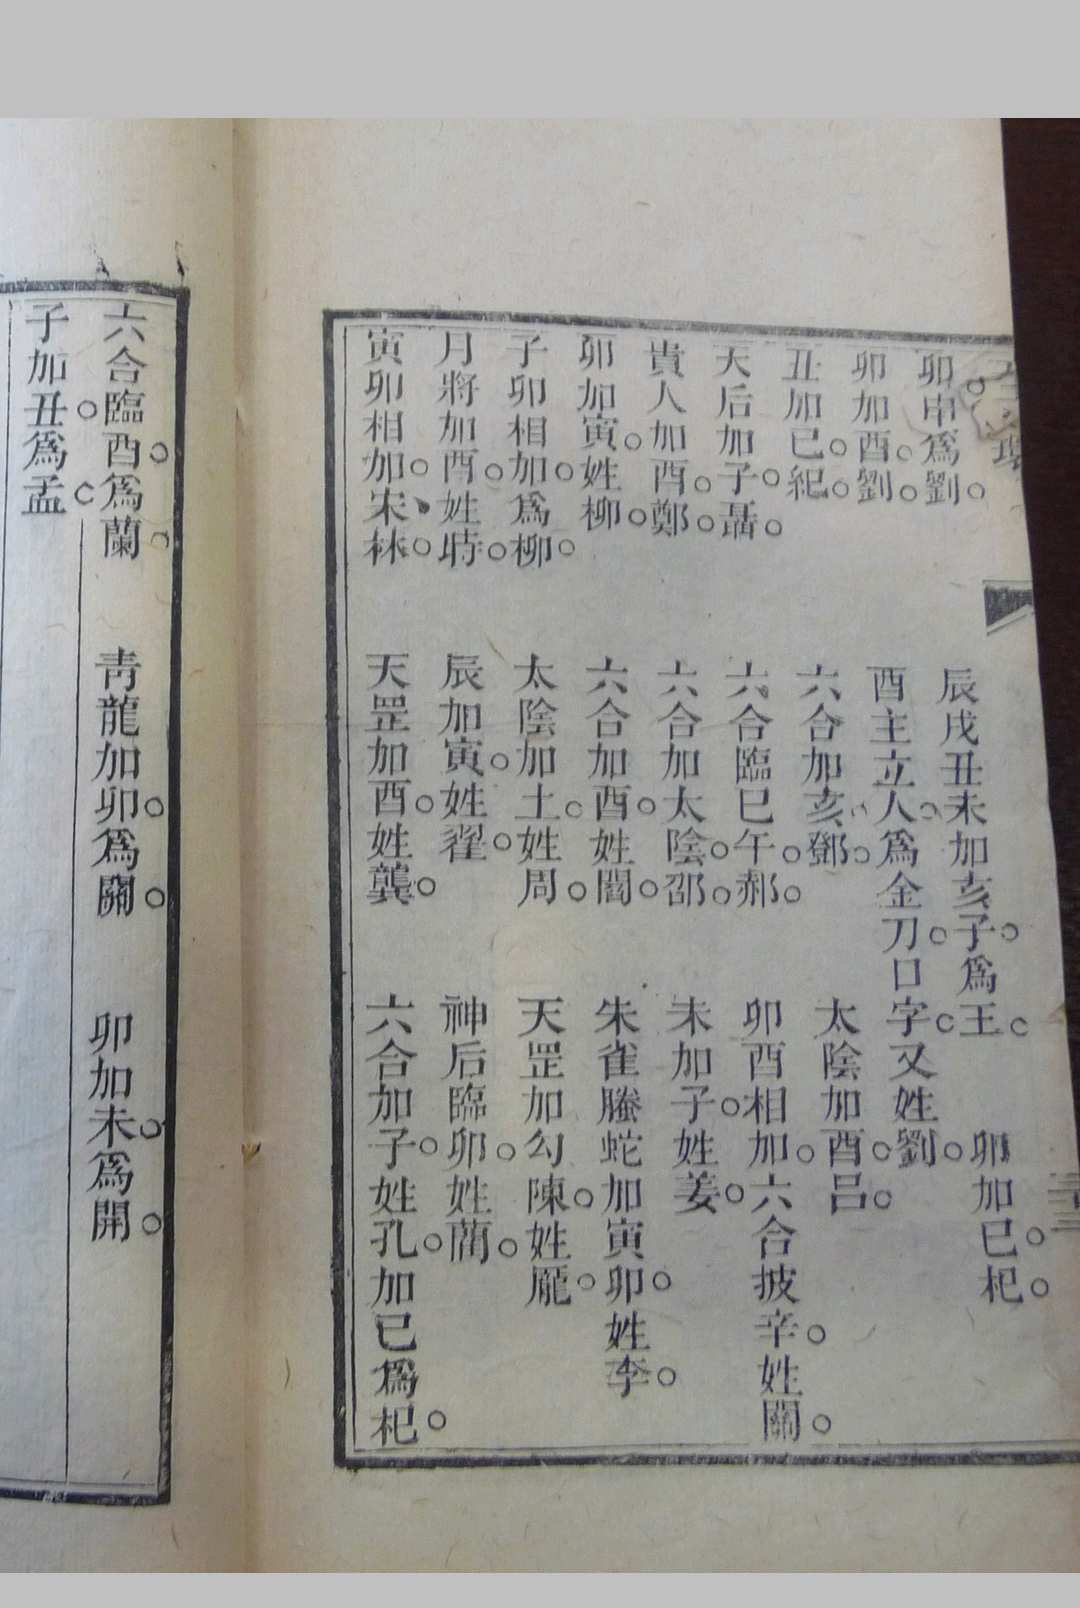 卯申爲劉。 辰戌丑未加亥子。爲王。 卯加巳。杞。
卯加酉。劉。 酉主立人。爲金刀。口字。又姓劉。
丑加巳。紀。 六合加亥。鄧。 太陰加酉。呂。
天后加子。聶。 六合臨巳午。郝。 卯酉相加。六合披辛。姓關。
貴人加酉。鄭。 六合加太陰。邵。 未加子。姓姜。
卯加寅。姓柳。 六合加酉。姓閻。 朱雀螣蛇加寅卯。姓李。
子卯相加。爲柳。 太陰加土。姓周。 天罡加勾陳。姓龐。
月將加酉。姓時。 辰加寅。姓翟。 神后臨卯。姓藺。
寅卯相加。宋、林。 天罡加酉。姓龔。 六合加子。姓孔。加巳爲杞。
六合臨酉。爲蘭。 青龍加卯。爲關。 卯加未。爲開。
子加丑。爲孟。